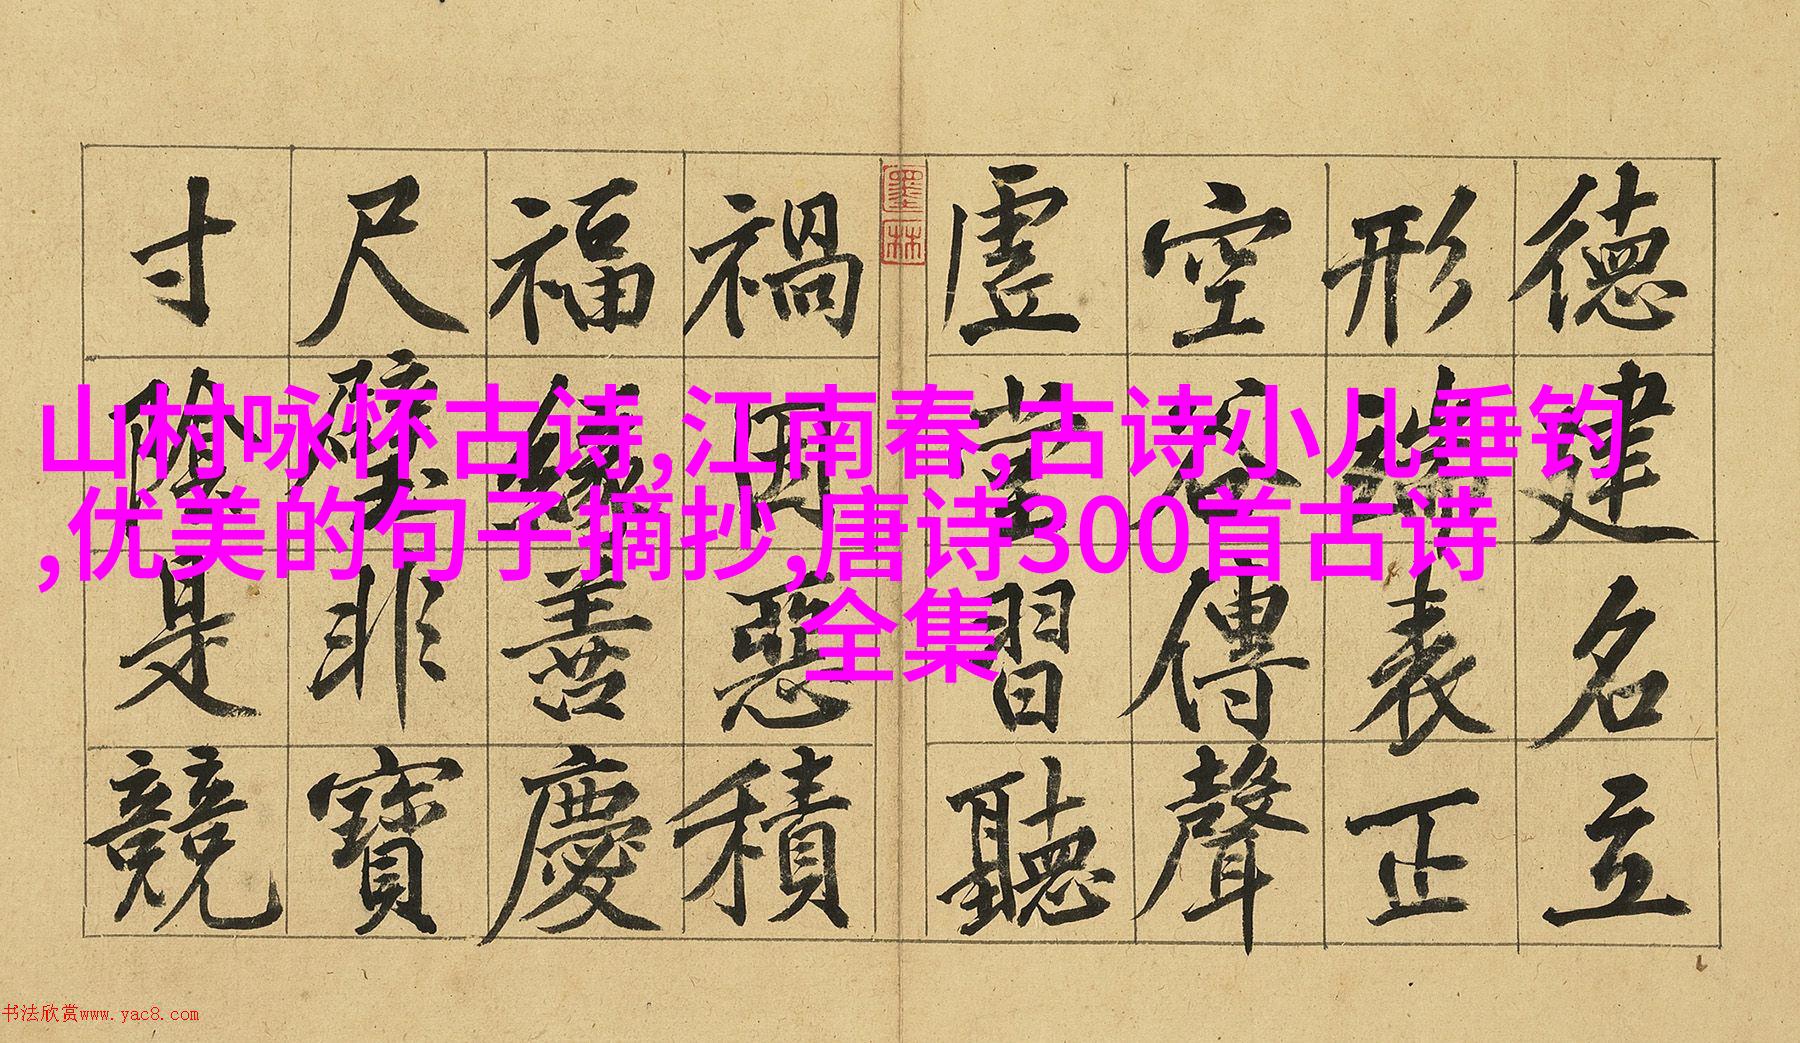 德建名立
形端表正
空谷傳聲
虛堂習聽
墨林
禍因惡積
福緣善慶
尺璧非寶
寸陰是競
山村咏怀古诗,江南春,古诗小儿垂钓
,优美的句子摘抄,唐诗300首古诗
全集
书法欣赏www.yac8.com